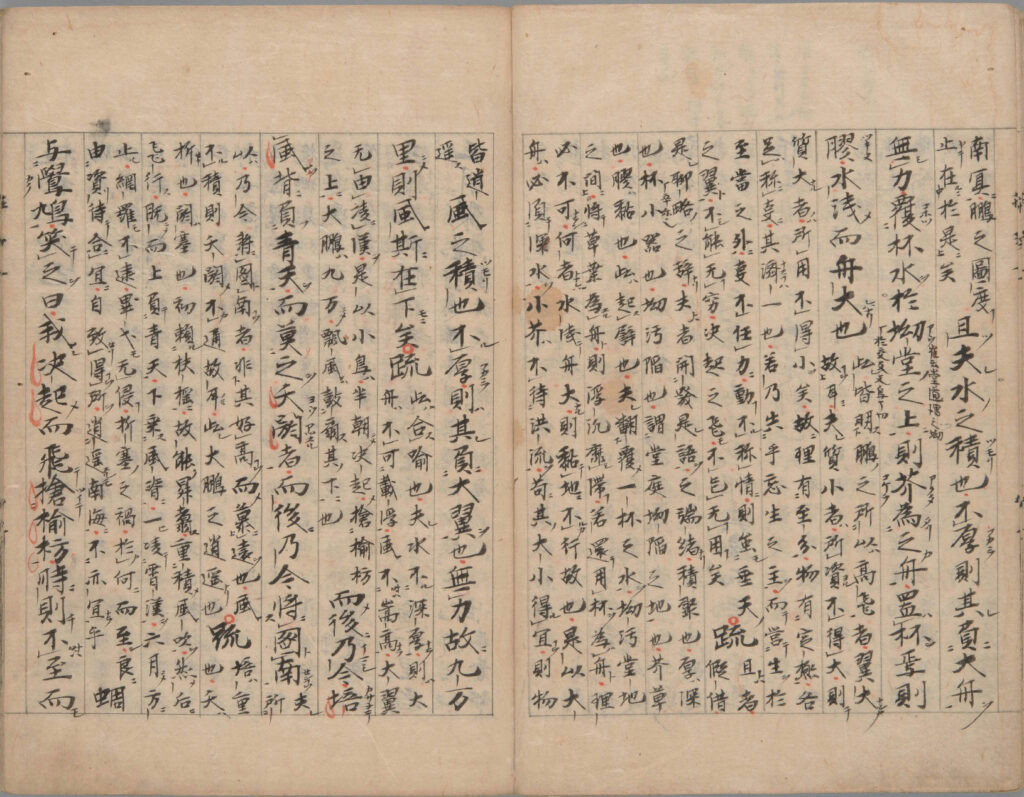 南冥鵬之圖度
止在於是矣
且夫水之積也不厚則其負大舟
無力覆杯水於坳堂之上則芥為之舟置杯焉則
膠水淺而舟大也
此皆明鵬之所以高飛者翼大
故耳夫質小者所資不得大則
質大者所用不得小矣故理有至分物有定極各
足称事其濟一也若乃失乎忘生之主而營生於
至當之外事不任力動不称情則雖垂天
之翼不能无窮决起之飛不能无困矣
疏
且者
假借
是聊略之辞夫者開發是語之端緒積聚也厚深
也杯小器也坳污陷也謂堂庭坳陷之地也芥草
也膠黏也此起譬也夫翻覆一杯之水坳污堂地
之間將草葉為舟則浮沉靡滯若還用杯為舟理
必不可何者水浅舟大則黏地不行故也是以大
舟必須深水小芥不待洪流苟其大小得宜則物
皆逍
遥
風之積也不厚則其負大翼也無力故九万
里則風斯在下矣
疏
此合喻也夫水不深厚則大
舟不可載浮風不嵩高大翼
无由凌漢是以小鳥半朝决起搶榆枋
之上大鵬九万飄風鼓扇其下也
而後乃今培
風背負青天而莫之夭閼者而後乃今將圖南
夫
所
以乃今將圖南者非其好高而慕遠也風
不積則夭閼不通故耳此大鵬之逍遥也
疏
培重
也夭
折也閼塞也初頼扶揺故能昇翥重積風吹然后
飛行既而上負青天下乗風脊一凌霄漢六月方
止網羅不逮畢弋无侵折塞之禍於何而至良
由資待合宜自致得所逍遥南海不亦宜乎
蜩
与鷽鳩笑之曰我决起而飛搶榆枋時則不至而